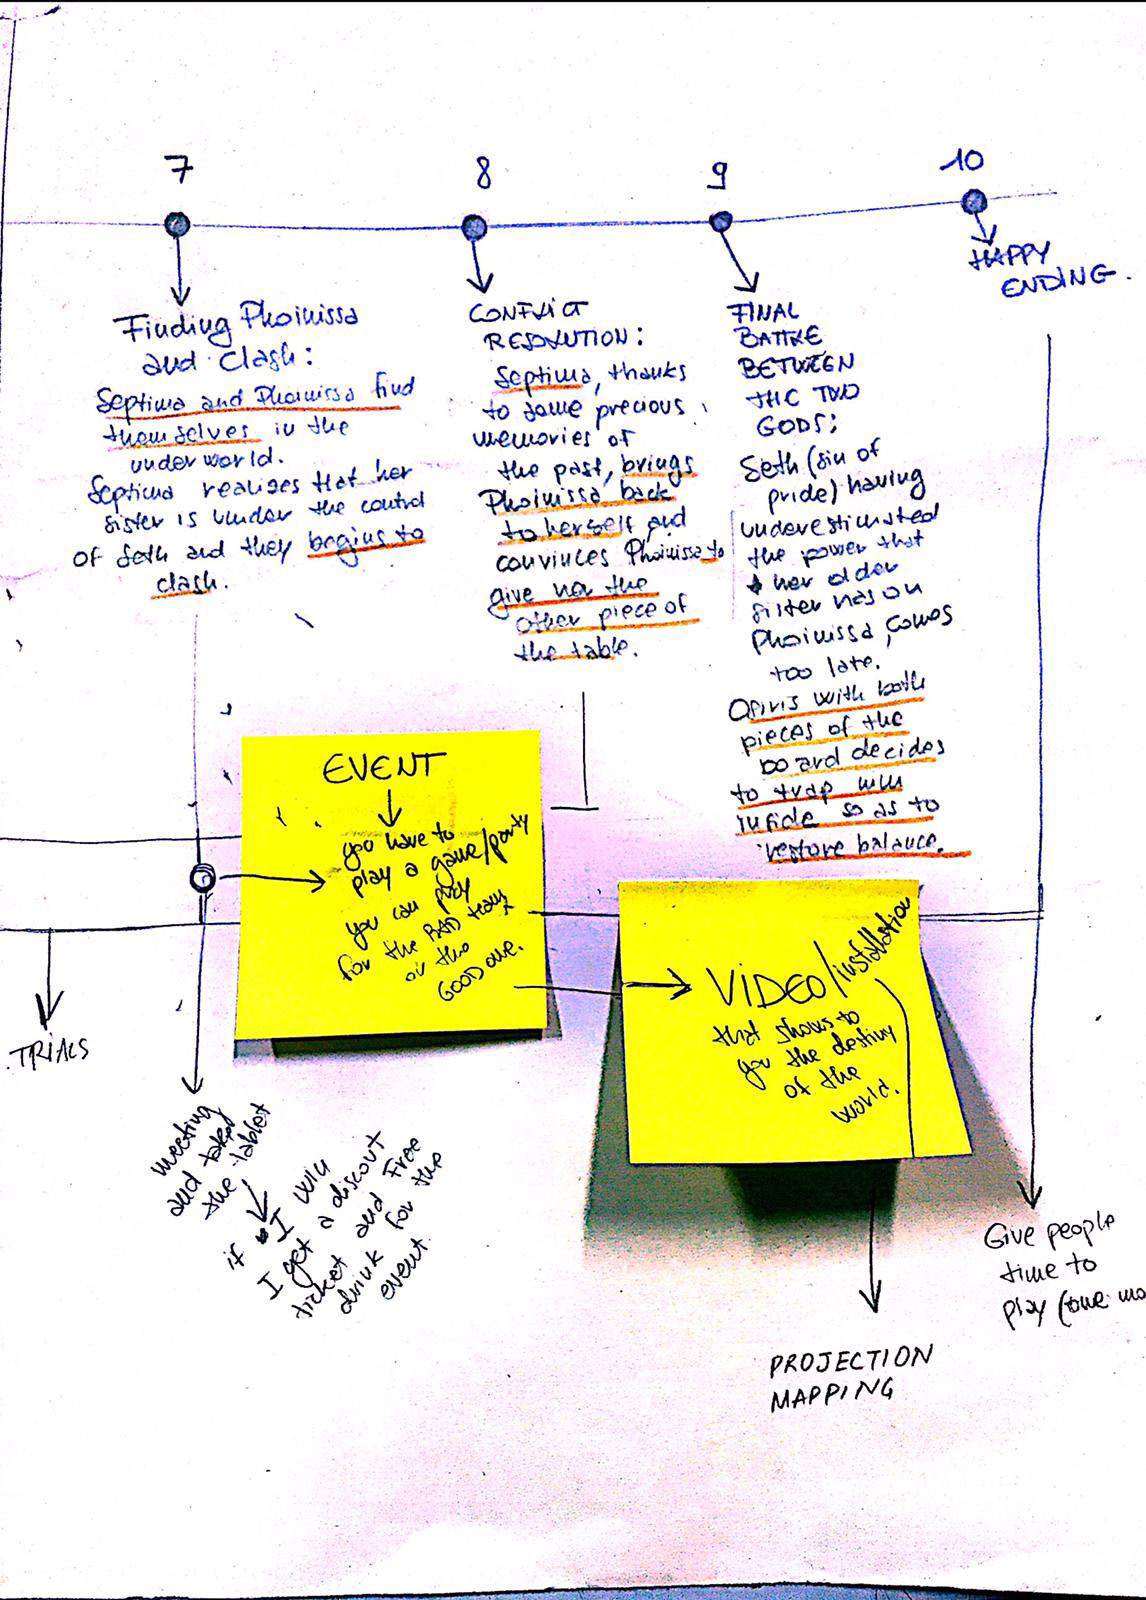 7
8
9
10
HAPPY
ENDING.
Finding Phoinissa
and Clash:
Septima and Phoinissa find
themselves in the
underworld.
Septima realizes that her
sister is under the control
of Seth and they begins to
clash.
CONFLICT
RESOLUTION:
Septima, thanks
to some precious
memories of
the past, brings
Phoinissa back
to herself and
convinces Phoinissa to
give her the
other piece of
the table.
FINAL
BATTLE
BETWEEN
THE TWO
GODS:
Seth (sin of
pride) having
underestimated
the power that
her older
sister has on
Phoinissa, comes
too late.
Osiris with both
pieces of the
board decides
to trap him
inside so as to
restore balance.
EVENT
you have to
play a game/party
you can play
for the BAD team
or the
GOOD one.
VIDEO/installation
that shows to
you the destiny
of the
world.
TRIALS
meeting
and take
the tablet
if I win
I get a discout
ticket and free
drink for the
event.
PROJECTION
MAPPING
Give people
time to
play (one mo